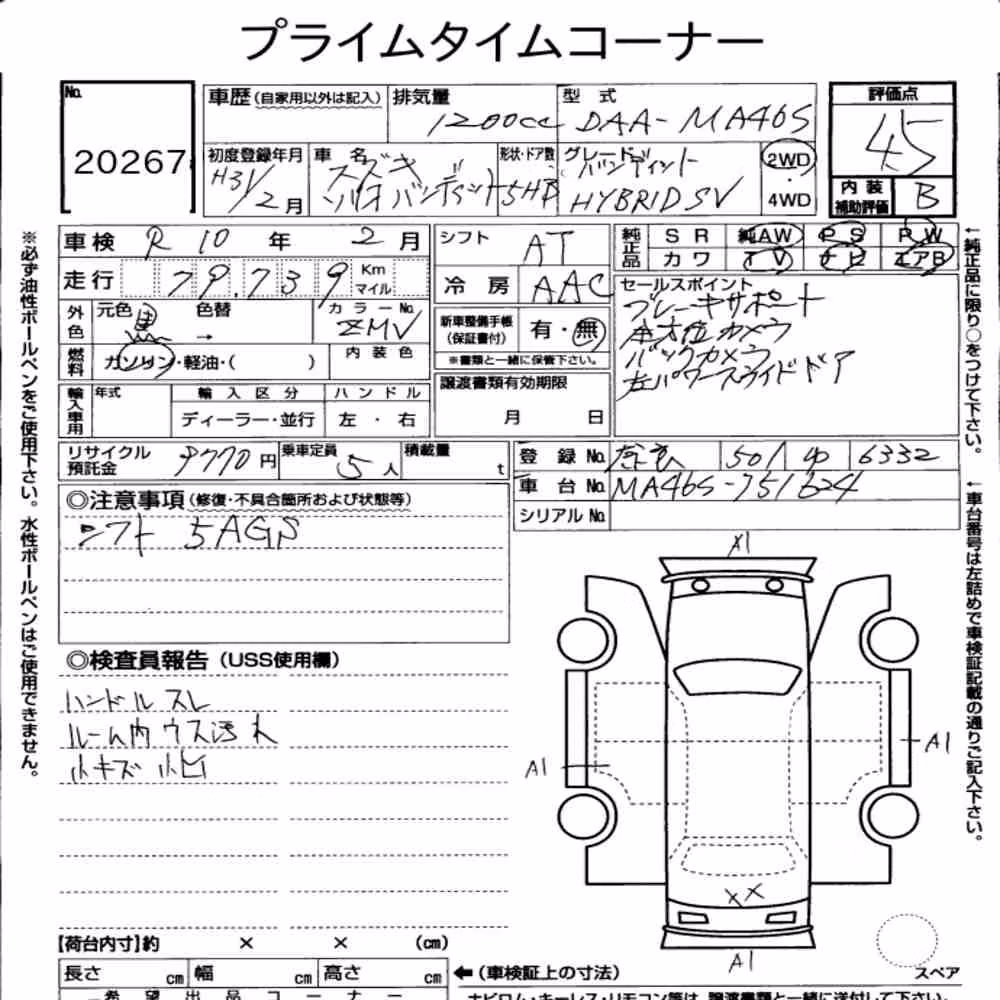 プライムタイムコーナー
No.
20267
車歴(自家用以外は記入)
排気量
1200cc
型式
DAA-MA46S
評価点
4.5
初度登録年月
H31/2月
車名
スズキ
ソリオバンディット
形状・ドア数
5HB
グレード
バンディット
HYBRID SV
2WD
・
4WD
内装
補助評価
B
車検 R10年 2月
走行 79,739 Km
マイル
外色
元色 黒
色替
→
カラーNo.
ZMV
燃料
ガソリン・軽油・( )
内装色
輸入車用
年式
輸入区分
ハンドル
ディーラー・並行
左・右
シフト
AT
冷房
AAC
新車整備手帳
(保証書付)
有・無
※書類と一緒に保管下さい。
譲渡書類有効期限
月 日
純正品
SR 純AW PS PW
カワ TV ナビ エアB
セールスポイント
ブレーキサポート
全方位カメラ
バックカメラ
左パワースライドドア
リサイクル
預託金
9770円
乗車定員
5人
積載量
t
登録No. 501 6332
車台No. MA46S-751624
シリアルNo.
◎注意事項(修復・不具合箇所および状態等)
シフト 5AGS
◎検査員報告(USS使用欄)
ハンドルスレ
ルーム内ウス汚れ
小キズ 小凹
A1
A1
A1
XX
A1
スペア
【荷台内寸】約 × × (cm)
長さ cm 幅 cm 高さ cm
←(車検証上の寸法)
希望出品コーナー
ナビロム・キーレス・リモコン等は、譲渡書類と一緒に送付して下さい。
※必ず油性ボールペンをご使用下さい。水性ボールペンはご使用できません。
←純正品に限り○をつけて下さい。
←車台番号は左詰めで車検証記載の通りご記入下さい。